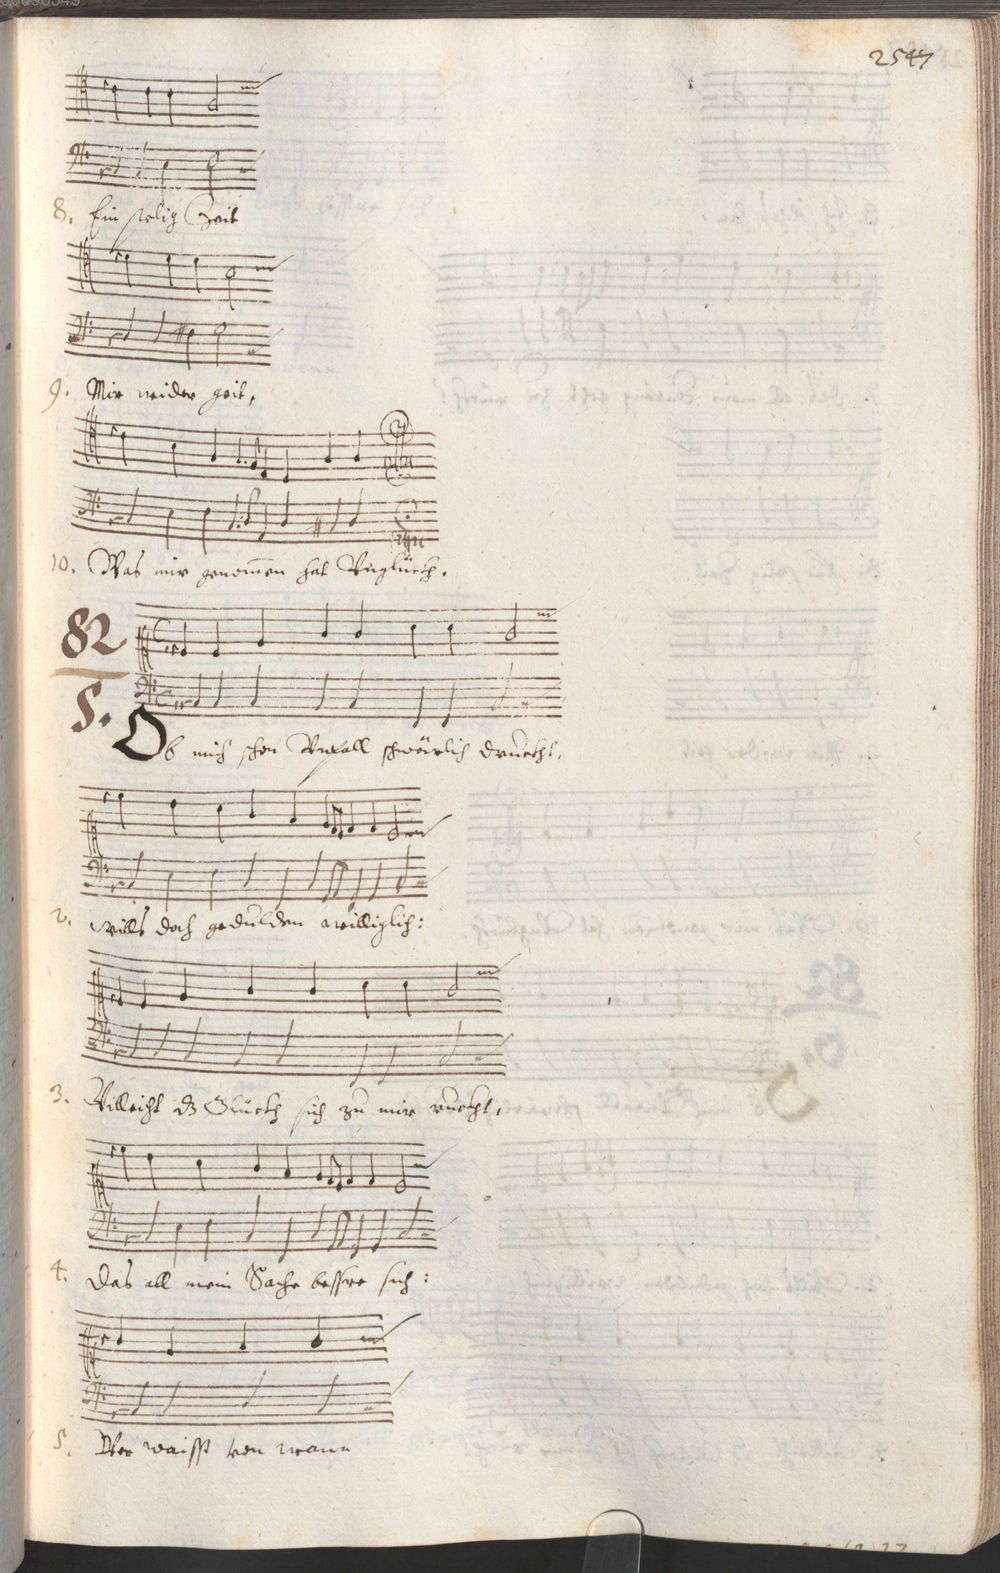 2547
8. Ein selig Zeit
9. Mir wider geit,
10. Was mir genom̄en hat Unglückh.
82
5.
Ob mich schon Unfall schwärlich druckht,
2. wills doch gedulden williglich:
3. Villeicht dz Glückh sich zu mir ruckht,
4. Das all mein Sache bessre sich:
5. Wer waisst von wann